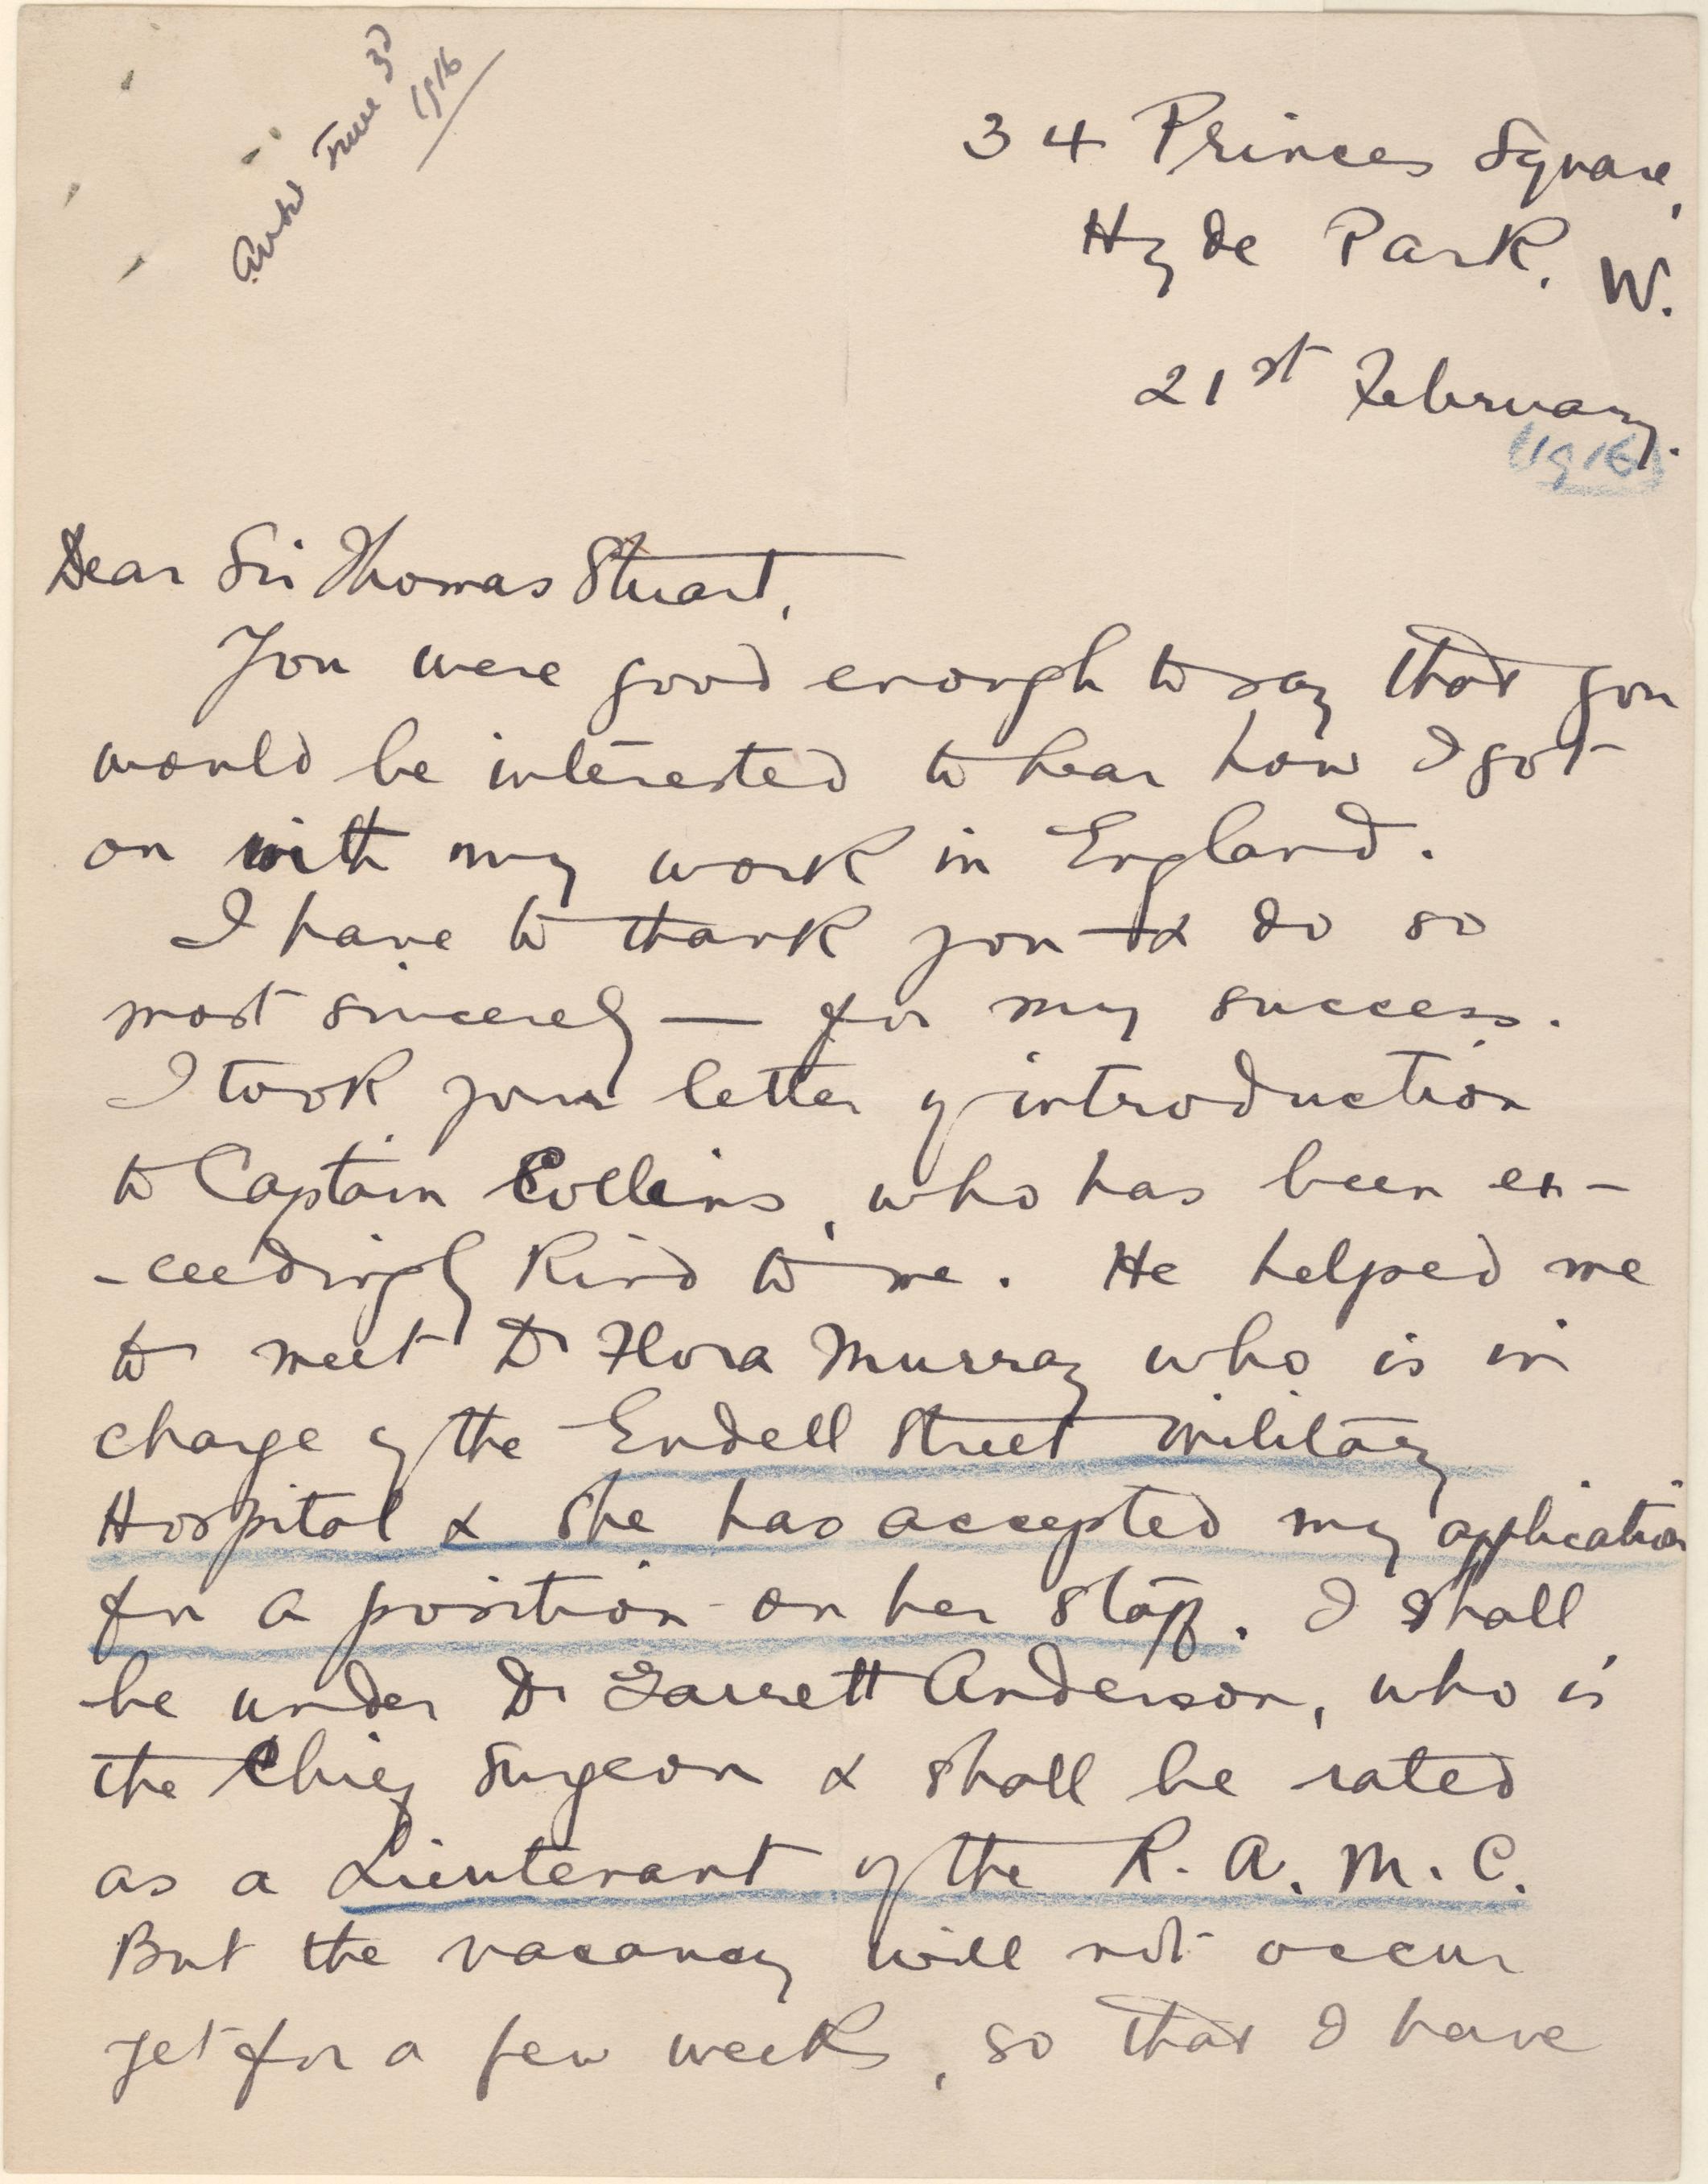 June 3d
1916
34 Princes Square,
Hyde Park. W.
21st February.
(1916)
Dear Sir Thomas Stuart,
You were good enough to say that you
would be interested to hear how I got
on with my work in England.
I have to thank you — & do so
most sincerely — for my success.
I took your letter of introduction
to Captain Collins, who has been ex-
-ceedingly kind to me. He helped me
to meet Dr Flora Murray who is in
charge of the Endell Street Military
Hospital & she has accepted my application
for a position on her staff. I shall
be under Dr Garrett Anderson, who is
the Chief Surgeon & shall be rated
as a Lieutenant of the R.A.M.C.
But the vacancy will not occur
yet for a few weeks, so that I have